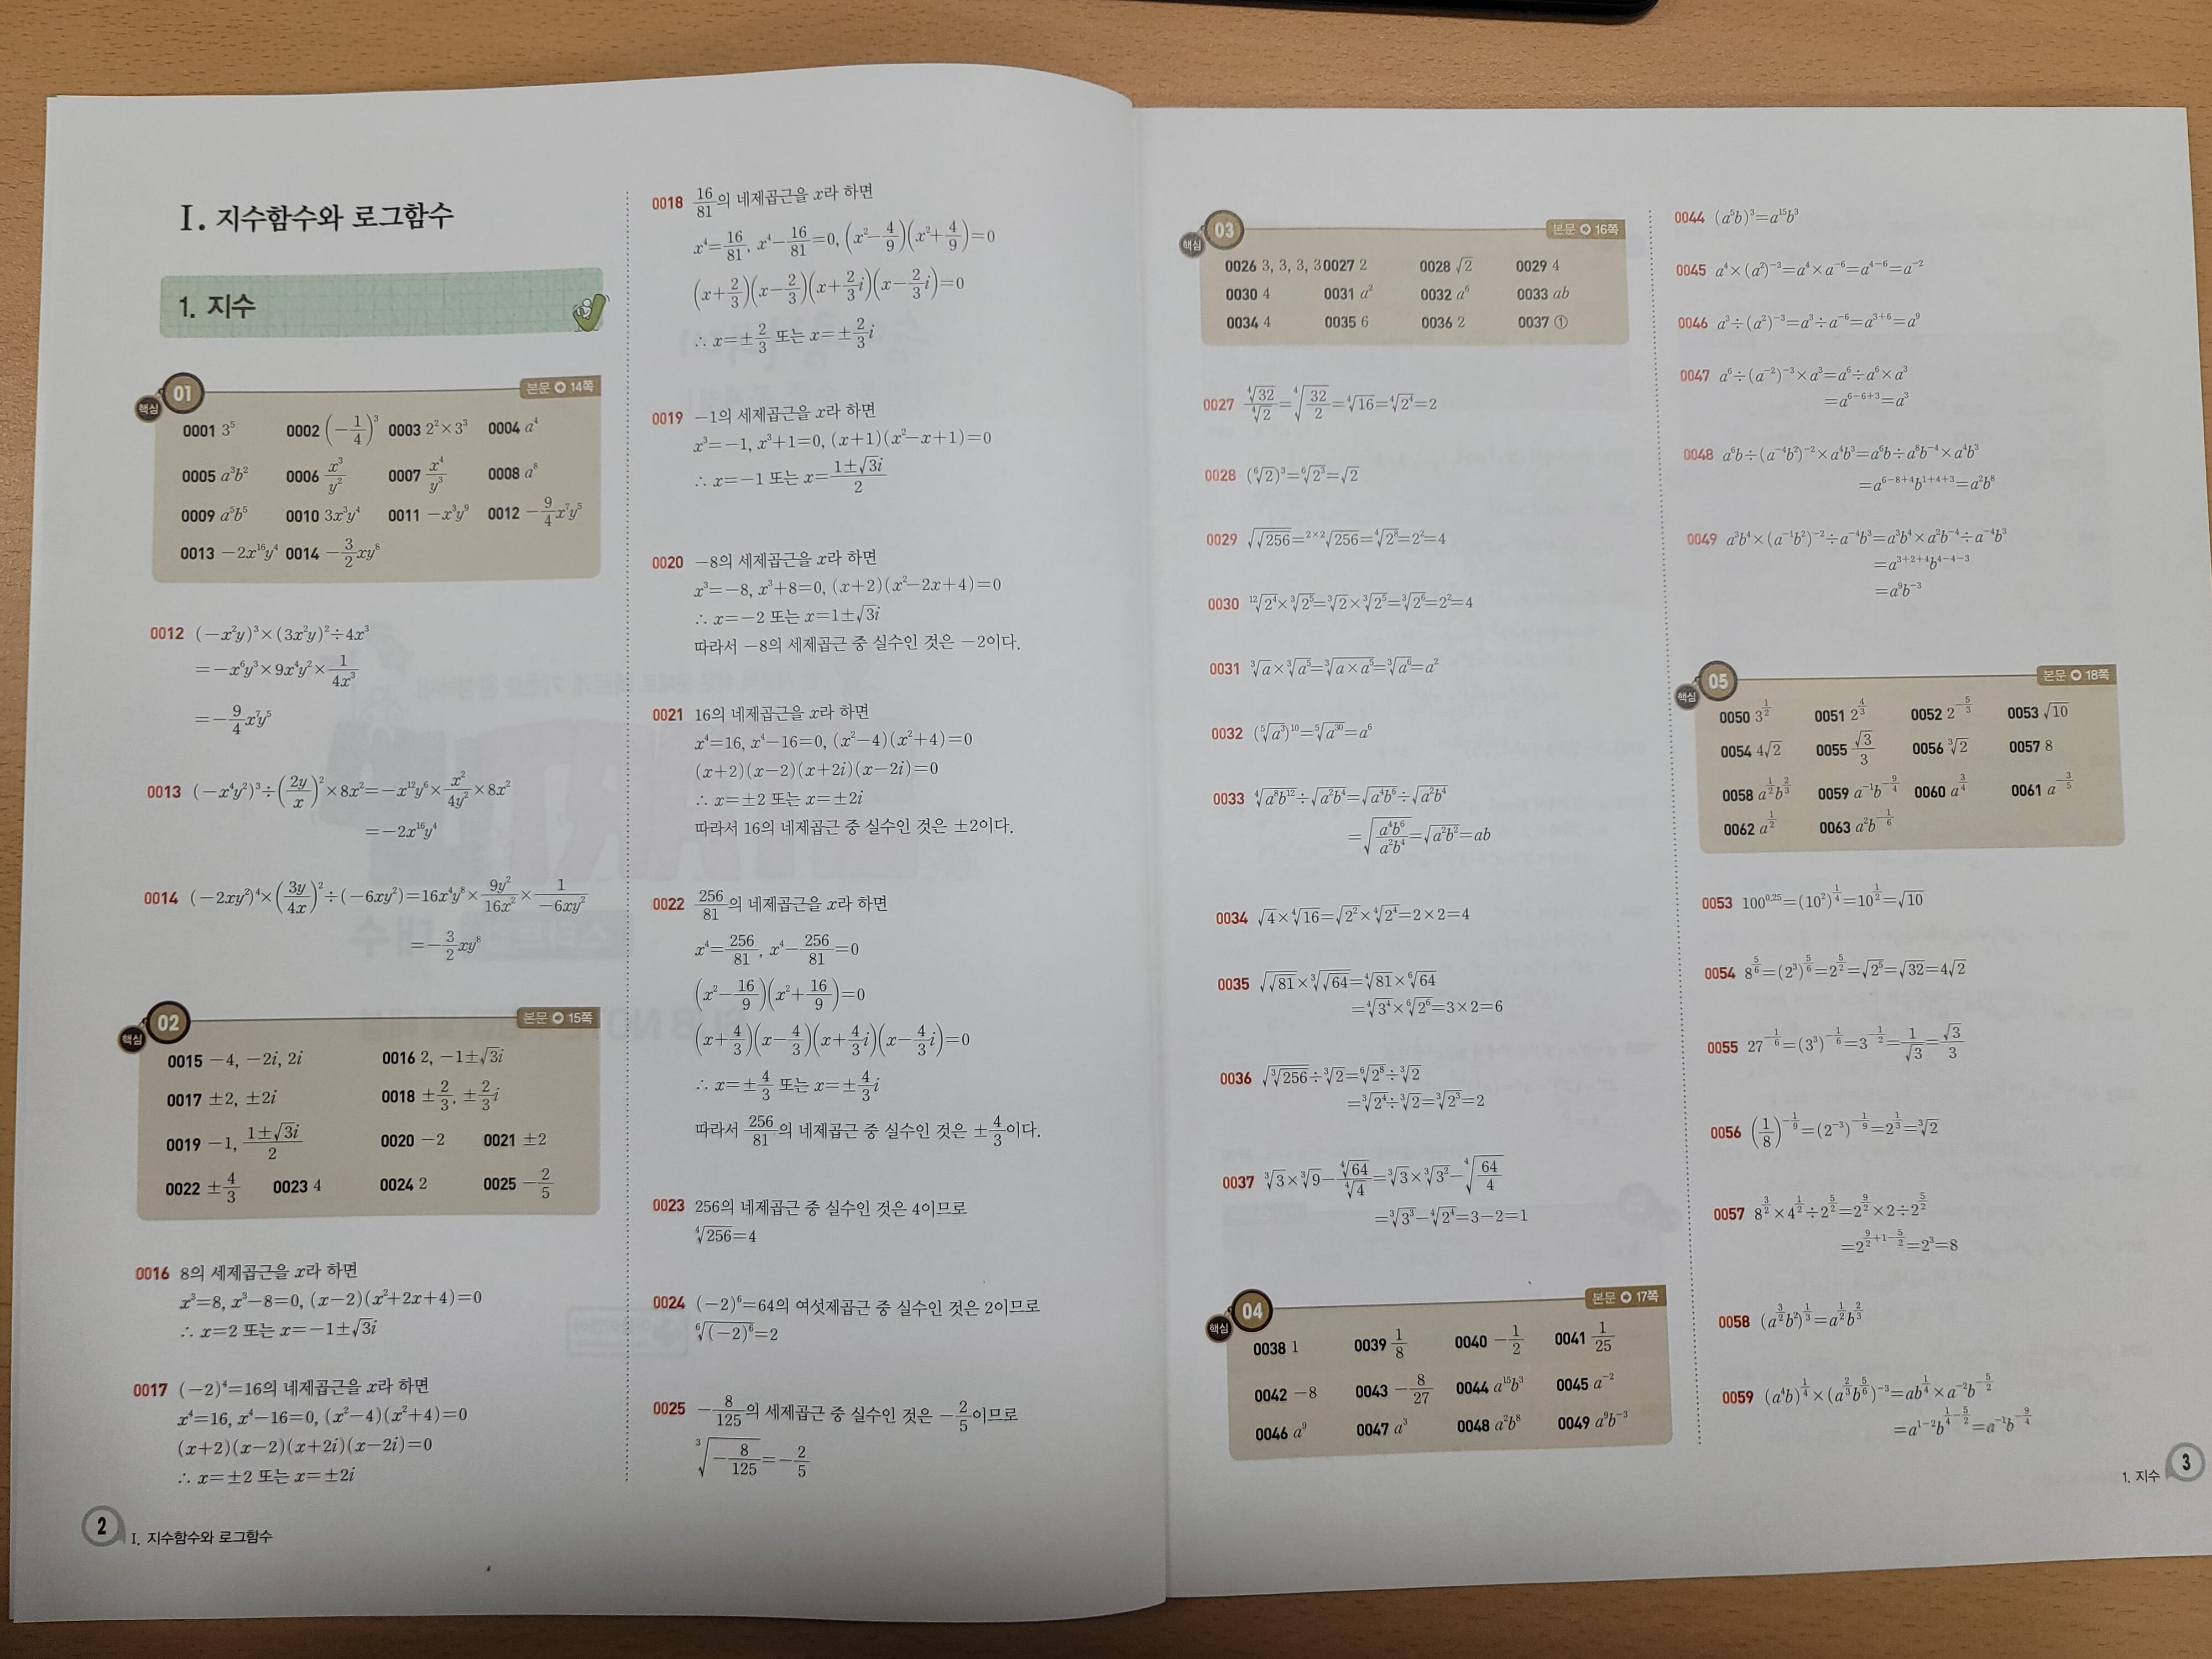 I. 지수함수와 로그함수
1. 지수
핵심 01 본문 14쪽
0001 3⁵ 0002 (-1/4)³ 0003 2²×3³ 0004 a⁴
0005 a³b² 0006 x³/y² 0007 x⁴/y³ 0008 a⁸
0009 a⁵b⁵ 0010 3x³y⁴ 0011 -x³y⁹ 0012 -9/4 x⁷y⁵
0013 -2x¹⁶y⁴ 0014 -3/2 xy⁸
0012 (-x²y)³×(3x²y)²÷4x³
=-x⁶y³×9x⁴y²×1/4x³
=-9/4 x⁷y⁵
0013 (-x⁴y²)³÷(2y/x)²×8x²=-x¹²y⁶×x²/4y²×8x²
=-2x¹⁶y⁴
0014 (-2xy²)⁴×(3y/4x)²÷(-6xy²)=16x⁴y⁸×9y²/16x²×1/-6xy²
=-3/2 xy⁸
핵심 02 본문 15쪽
0015 -4, -2i, 2i 0016 2, -1±√3i
0017 ±2, ±2i 0018 ±2/3, ±2/3 i
0019 -1, (1±√3i)/2 0020 -2 0021 ±2
0022 ±4/3 0023 4 0024 2 0025 -2/5
0016 8의 세제곱근을 x라 하면
x³=8, x³-8=0, (x-2)(x²+2x+4)=0
∴ x=2 또는 x=-1±√3i
0017 (-2)⁴=16의 네제곱근을 x라 하면
x⁴=16, x⁴-16=0, (x²-4)(x²+4)=0
(x+2)(x-2)(x+2i)(x-2i)=0
∴ x=±2 또는 x=±2i
2 I. 지수함수와 로그함수
0018 16/81의 네제곱근을 x라 하면
x⁴=16/81, x⁴-16/81=0, (x²-4/9)(x²+4/9)=0
(x+2/3)(x-2/3)(x+2/3 i)(x-2/3 i)=0
∴ x=±2/3 또는 x=±2/3 i
0019 -1의 세제곱근을 x라 하면
x³=-1, x³+1=0, (x+1)(x²-x+1)=0
∴ x=-1 또는 x=(1±√3i)/2
0020 -8의 세제곱근을 x라 하면
x³=-8, x³+8=0, (x+2)(x²-2x+4)=0
∴ x=-2 또는 x=1±√3i
따라서 -8의 세제곱근 중 실수인 것은 -2이다.
0021 16의 네제곱근을 x라 하면
x⁴=16, x⁴-16=0, (x²-4)(x²+4)=0
(x+2)(x-2)(x+2i)(x-2i)=0
∴ x=±2 또는 x=±2i
따라서 16의 네제곱근 중 실수인 것은 ±2이다.
0022 256/81의 네제곱근을 x라 하면
x⁴=256/81, x⁴-256/81=0
(x²-16/9)(x²+16/9)=0
(x+4/3)(x-4/3)(x+4/3 i)(x-4/3 i)=0
∴ x=±4/3 또는 x=±4/3 i
따라서 256/81의 네제곱근 중 실수인 것은 ±4/3이다.
0023 256의 네제곱근 중 실수인 것은 4이므로
⁴√256=4
0024 (-2)⁶=64의 여섯제곱근 중 실수인 것은 2이므로
⁶√(-2)⁶=2
0025 -8/125의 세제곱근 중 실수인 것은 -2/5이므로
³√(-8/125)=-2/5
핵심 03 본문 16쪽
0026 3, 3, 3, 3 0027 2 0028 √2 0029 4
0030 4 0031 a² 0032 a⁶ 0033 ab
0034 4 0035 6 0036 2 0037 ①
0027 ⁴√32/⁴√2=⁴√(32/2)=⁴√16=⁴√2⁴=2
0028 (⁶√2)³=⁶√2³=√2
0029 √√256=²ˣ²√256=⁴√2⁸=2²=4
0030 ¹²√2⁴×³√2⁵=³√2×³√2⁵=³√2⁶=2²=4
0031 ³√a×³√a⁵=³√(a×a⁵)=³√a⁶=a²
0032 (⁵√a³)¹⁰=⁵√a³⁰=a⁶
0033 ⁴√(a⁸b¹²)÷√(a²b⁴)=√(a⁴b⁶)÷√(a²b⁴)
=√(a⁴b⁶/a²b⁴)=√(a²b²)=ab
0034 √4×⁴√16=√2²×⁴√2⁴=2×2=4
0035 √√81×³√√64=⁴√81×⁶√64
=⁴√3⁴×⁶√2⁶=3×2=6
0036 √³√256÷³√2=⁶√2⁸÷³√2
=³√2⁴÷³√2=³√2³=2
0037 ³√3×³√9-⁴√64/⁴√4=³√3×³√3²-⁴√(64/4)
=³√3³-⁴√2⁴=3-2=1
핵심 04 본문 17쪽
0038 1 0039 1/8 0040 -1/2 0041 1/25
0042 -8 0043 -8/27 0044 a¹⁵b³ 0045 a⁻²
0046 a⁹ 0047 a³ 0048 a²b⁸ 0049 a⁹b⁻³
0044 (a⁵b)³=a¹⁵b³
0045 a⁴×(a²)⁻³=a⁴×a⁻⁶=a⁴⁻⁶=a⁻²
0046 a³÷(a²)⁻³=a³÷a⁻⁶=a³⁺⁶=a⁹
0047 a⁶÷(a⁻²)⁻³×a³=a⁶÷a⁶×a³
=a⁶⁻⁶⁺³=a³
0048 a⁶b÷(a⁻⁴b²)⁻²×a⁴b³=a⁶b÷a⁸b⁻⁴×a⁴b³
=a⁶⁻⁸⁺⁴b¹⁺⁴⁺³=a²b⁸
0049 a³b⁴×(a⁻¹b²)⁻²÷a⁻⁴b³=a³b⁴×a²b⁻⁴÷a⁻⁴b³
=a³⁺²⁺⁴b⁴⁻⁴⁻³
=a⁹b⁻³
핵심 05 본문 18쪽
0050 3^(1/2) 0051 2^(4/3) 0052 2^(-5/3) 0053 √10
0054 4√2 0055 √3/3 0056 ³√2 0057 8
0058 a^(1/2)b^(2/3) 0059 a⁻¹b^(-9/4) 0060 a^(3/4) 0061 a^(-3/5)
0062 a^(1/2) 0063 a²b^(-1/6)
0053 100^0.25=(10²)^(1/4)=10^(1/2)=√10
0054 8^(5/6)=(2³)^(5/6)=2^(5/2)=√2⁵=√32=4√2
0055 27^(-1/6)=(3³)^(-1/6)=3^(-1/2)=1/√3=√3/3
0056 (1/8)^(-1/9)=(2⁻³)^(-1/9)=2^(1/3)=³√2
0057 8^(3/2)×4^(1/2)÷2^(5/2)=2^(9/2)×2÷2^(5/2)
=2^(9/2+1-5/2)=2³=8
0058 (a^(3/2)b²)^(1/3)=a^(1/2)b^(2/3)
0059 (a⁴b)^(1/4)×(a^(2/3)b^(5/6))⁻³=ab^(1/4)×a⁻²b^(-5/2)
=a¹⁻²b^(1/4-5/2)=a⁻¹b^(-9/4)
1. 지수 3